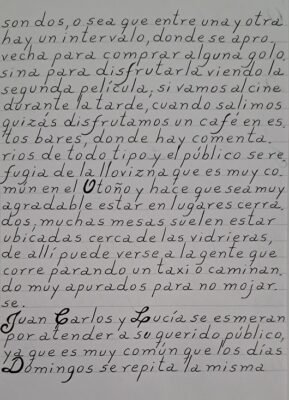 son dos, o sea que entre una y otra
hay un intervalo, donde se apro.
vecha para comprar alguna golo.
sina para disfrutarla viendo la
segunda película, si vamos al cine
durante la tarde, cuando salimos
quizás disfrutamos un café en es.
tos bares, donde hay comenta.
rios de todo tipo y el público se re.
fugia de la llovizna que es muy co.
mún en el Otoño y hace que sea muy
agradable estar en lugares cerra.
dos, muchas mesas suelen estar
ubicadas cerca de las vidrieras,
de allí puede verse a la gente que
corre parando un taxi o caminan.
do muy apurados para no mojar.
se.
Juan Carlos y Lucía se esmeran
por atender a su querido público,
ya que es muy común que los días
Domingos se repita la misma